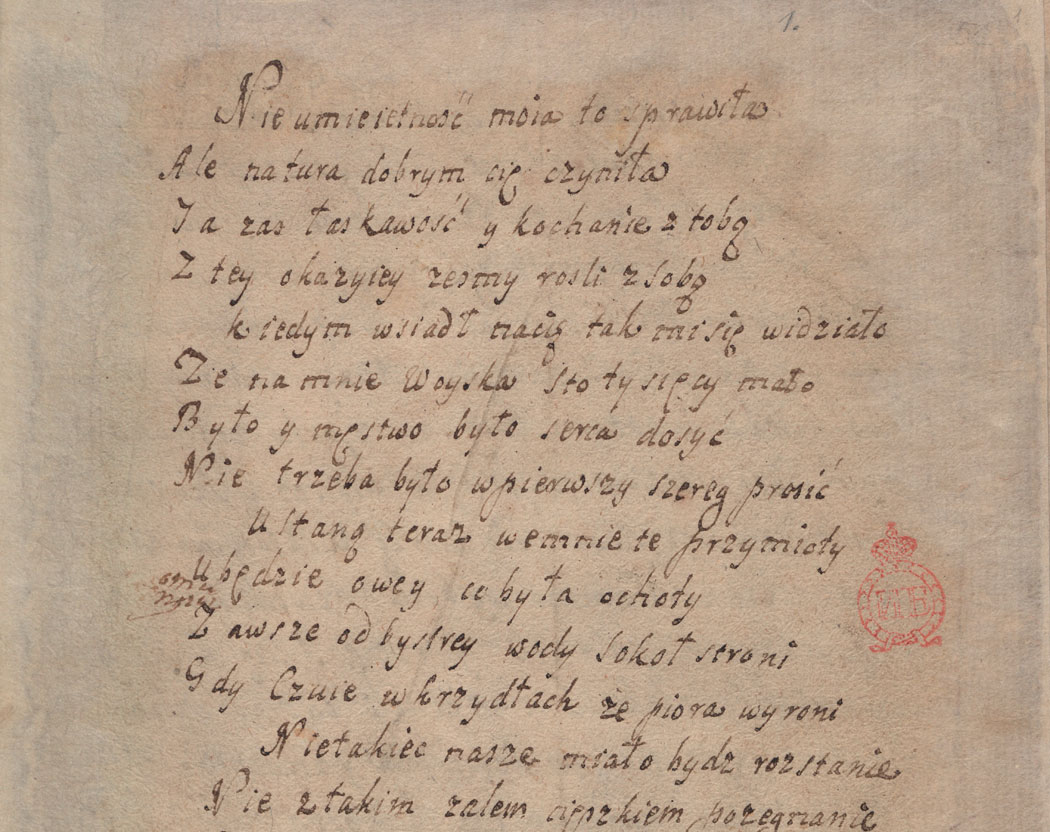 1.
Nieumieiętność moia to sprawiła
Ale natura dobrym cię czyniła
Ja zas łaskawość y kochanie z tobą
Z tey okazyiey zesmy rosli zsobą
kiedym wsiadł nacię tak mi się widziało
Ze na mnie Woyska sto tysięcy mało
Było y męstwo było serca dosyć
Nie trzeba było wpierwszy szereg prosić
Ustaną teraz wemnie te przymioty
Ubędzie owey co była ochoty
Zawsze od bystrey wody Sokoł stroni
Gdy Czuie wkrzydłach ze piora wyroni
Nietakiec nasze miało bydz rozstanie
Nie ztakim zalem cięszkiem pozegnanie